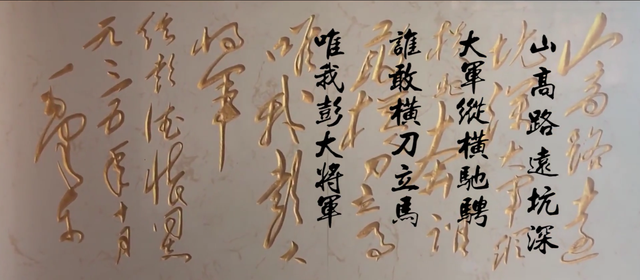 山高路遠
坑深大軍縱
橫馳奔誰
敢橫刀立馬
唯我彭大
將軍
給彭德懷同
一九三五年十月
毛澤東
山高路遠坑深
大軍縱橫馳騁
誰敢橫刀立馬
唯我彭大將軍